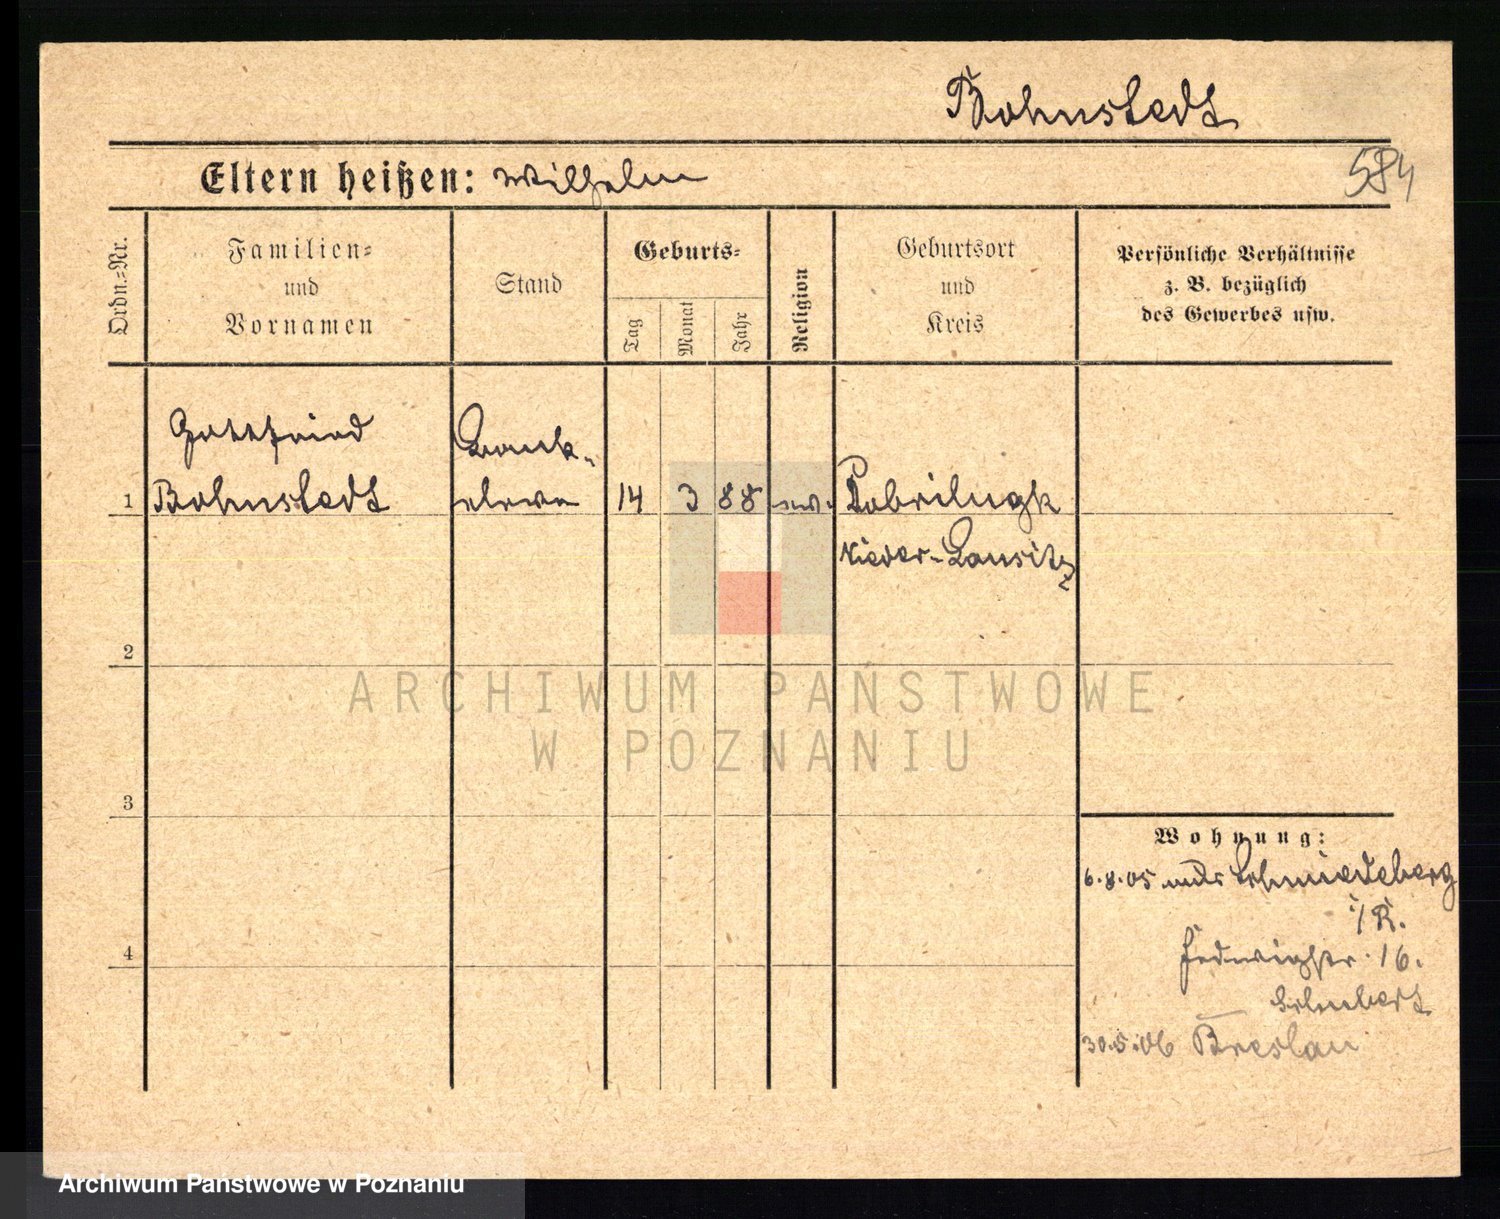 Bohnstedt
Eltern heißen: Wilhelm
584
Ordn.-Nr.
Familien-
und
Vornamen
Stand
Geburts-
Tag
Monat
Jahr
Religion
Geburtsort
und
Kreis
Persönliche Verhältnisse
z. B. bezüglich
des Gewerbes usw.
Gottfried
Bank-
1 Bohnstedt eleve 14 3 88 ev. Dobrilugk
Nieder-Lausitz
2
ARCHIWUM PAŃSTWOWE
W POZNANIU
3
Wohnung:
6.8.05 Schmiedeberg
i/R.
4
Hedwigstr. 16.
Schubert
30.5.06 Breslau
Archiwum Państwowe w Poznaniu